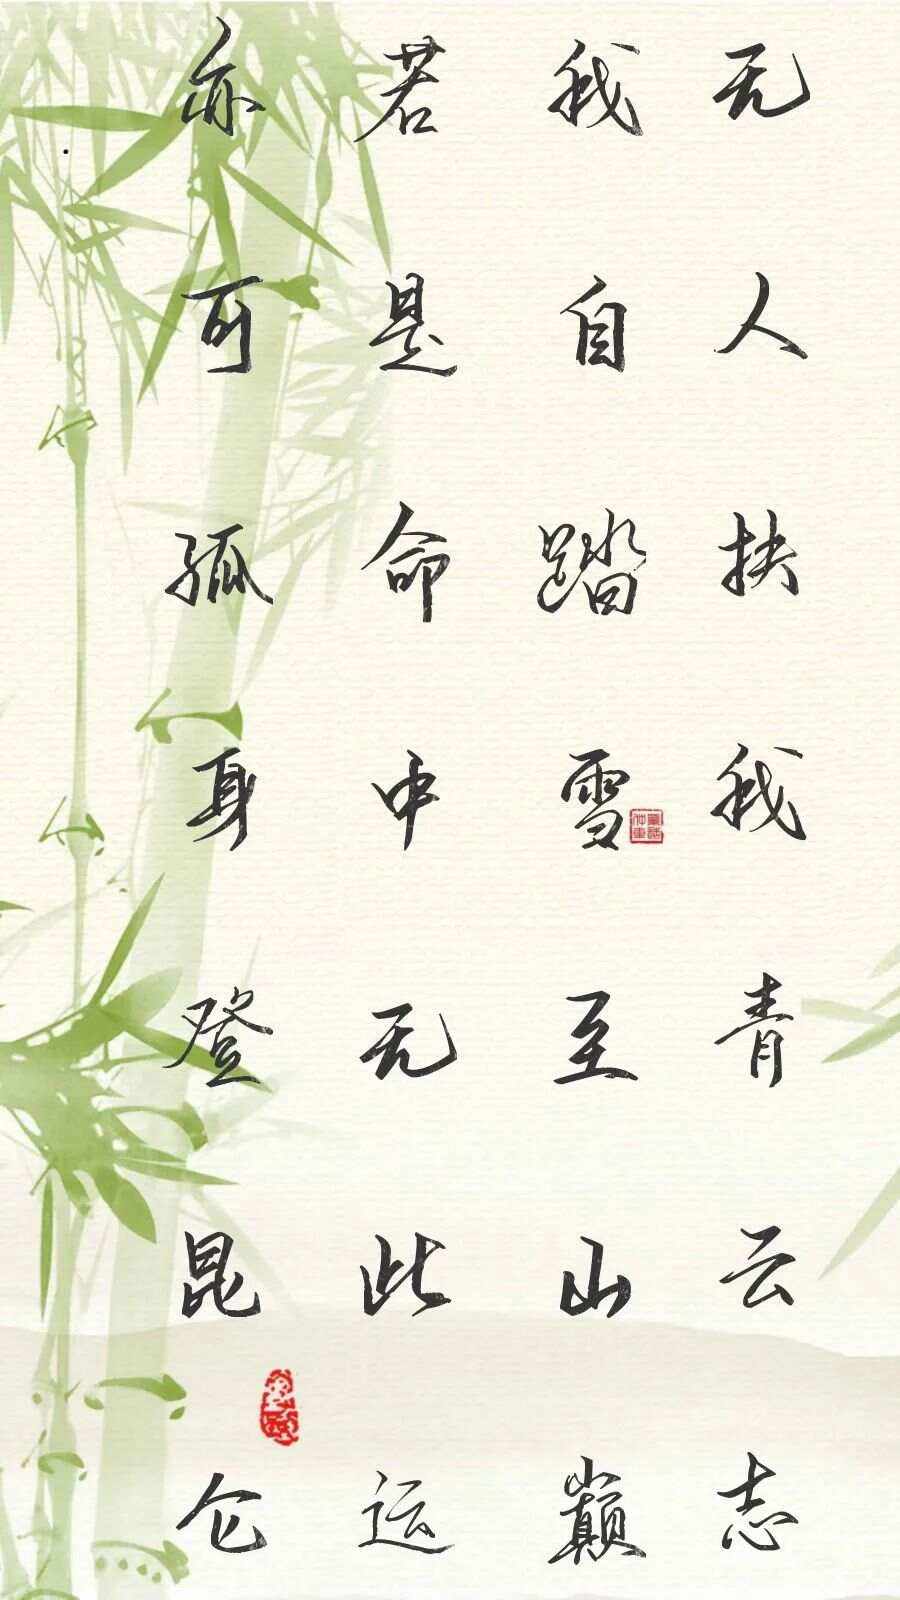 无人扶我青云志
我自踏雪至山巅
若是命中无此运
亦可孤身登昆仑